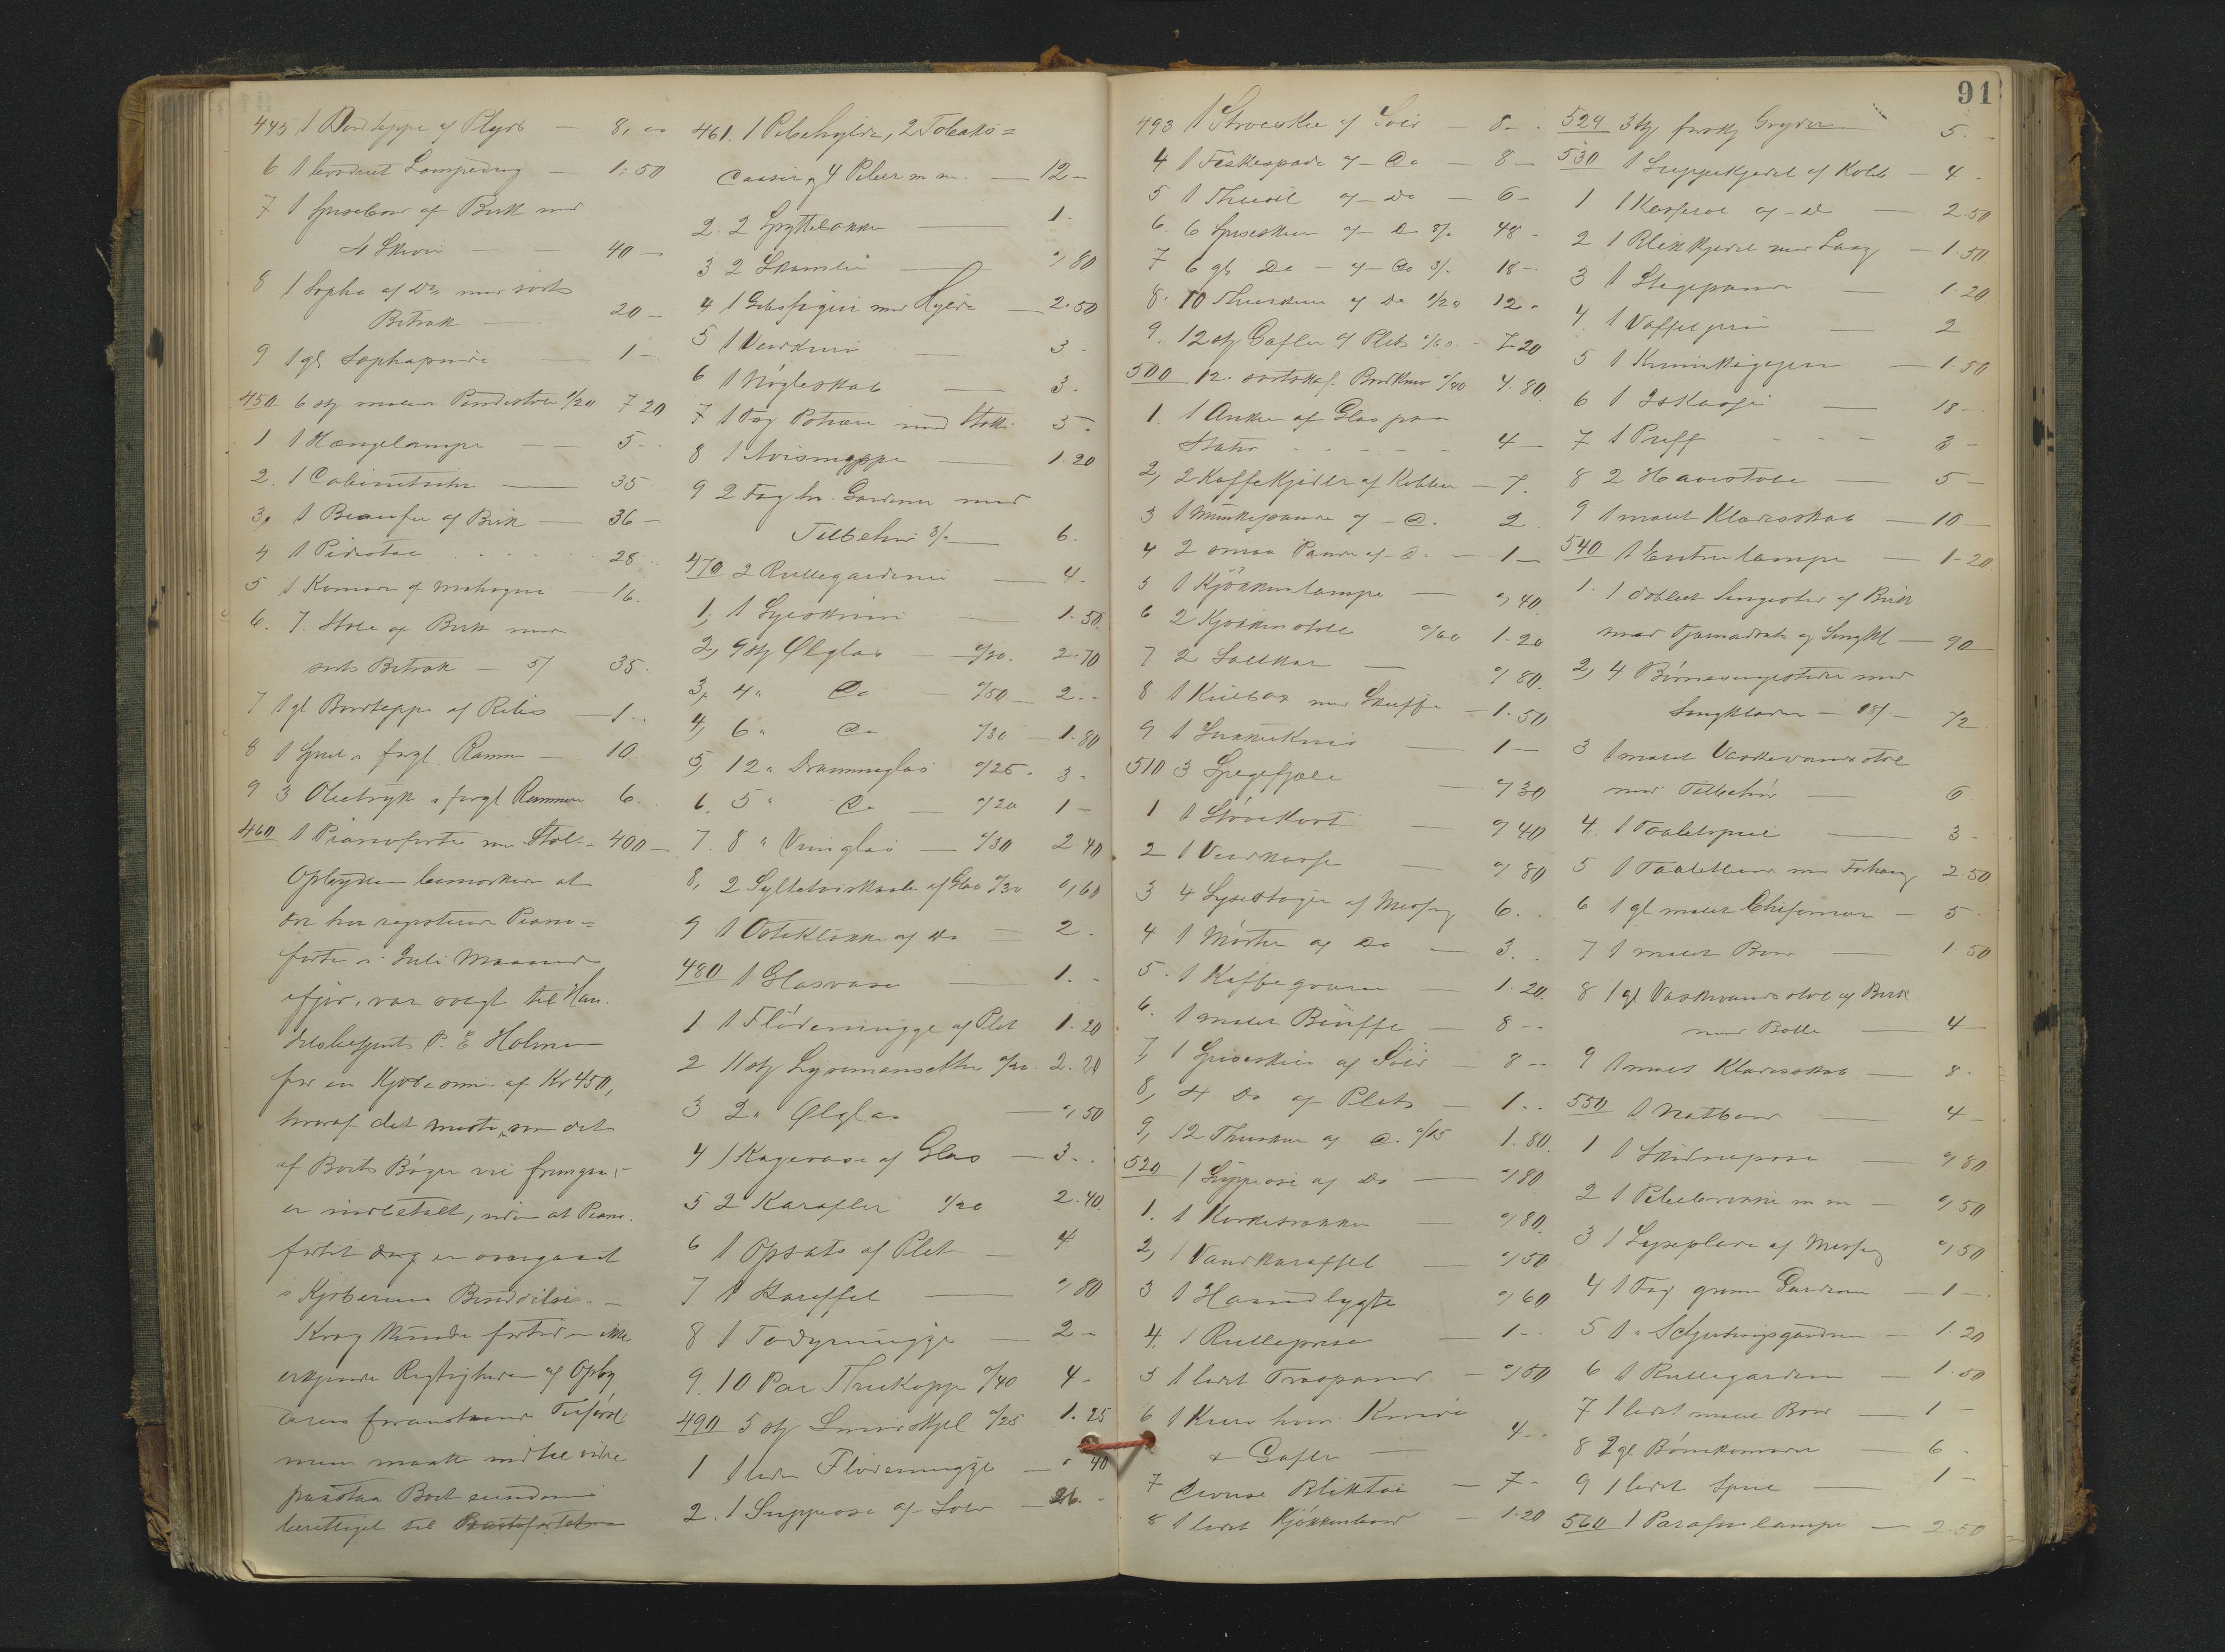 445 1 Bordteppe af Plyds — 8,00
6 1 broderet Lampedug — 1.50
7 1 Spisebord af Birk med
4 Skiver — 40 —
8 1 Sopha af Do med sorts
Betræk — 20 —
9 1 gl Sophapude — 1 —
450 6 stk malede Pindestole 1/20 7 20
1 1 Hængelampe — 5 -
2. 1 Cabinetsuhr — 35
3. 1 Beaufee af Birk — 36 —
4 1 Pidestal 28
5 1 Komode af Mahogni — 16.
6. 7. Stole af Birk med
sorts Betræk — 5/ 35.
7 1 gl Bordteppe af Ribs — 1 -
8 1 Speil i forgl. Ramme — 10
9 3 Olietryk i forgl Rammer 6
460 1 Pianoforte med Stol - 400 —
Opbyderen bemærker at
det her registrerede Piano=
forte i Juli Maaned
ifjor, var solgt til Han
delsbetjent P. E Holmen
for en Kjøbesum af Kr 450,
hvoraf det meste, som det
af Boets Bøger vil fremgaa,
er indbetalt, uden at Piano.
fortet dog er overgaaet
i Kjøberens Besiddelse. —
Krag kunde fortiden ikke
erkjende Rigtigheden af Opby
derens foranstaaende Tilførsel
men maatte indtil videre
paastaa Boet eiendoms
berettiget til
461. 1 Pibehylde, 2 Tobaks=
Casser og 4 Piber m m. — 12 —
2. 2 Spyttebakker — 1 -
3 2 Skamler — 0,80
4 1 Gibsfigur med Hylde — 2.50
5 1 Vedkurv — 3 -
6 1 Nøgleskab — 3.
7 1 Fag Potiere med Stokk 5 -
8 1 Avismappe — 1.20
9 2 Fag hv. Gardiner med
Tilbehør 3/- — 6.
470 2 Rullegardiner — 4 -
1, 1 Syeskrin — 1.50
2, 9 stk Ølglas — 0/30. 2.70
3, 4 " Do — 0/50 — 2 -
4, 6 " Do 0/30 — 1.80
5, 12 " Drammeglas 0/25 - 3 -
6. 5 " Do — 0/20 1 —
7. 8 " Vinglas — 0/30 2 40
8, 2 Syltetøiskaale af Glas 0/30 0,60
9 1 Osteklokke af Do — 2.
480 1 Glasvase — 1. -
1 1 Flødemugge af Plet 1.20
2 11 stk Lysemansetter 0/20. 2.20
3 2 " Ølglas — 0,50
4 1 Kagevase af Glas — 3 -
5 2 Karafler 1/20 2.40
6 1 Opsats af Plet — 4
7 1 Karaffel — 0,80
8 1 Todymugge — 2 -
9. 10 Par Thekopper 0/40 4 -
490 5 stk Smørskjel 0/25 1.25
1 1 liden Flødemugge — " 40
2. 1 Suppeøse af Sølv — 26. -
91
493 1 Strøeske af Sølv — 8 -
4 1 Fiskespade af — Do — 8 —
5 1 Thesil af — Do — 6 -
6. 6 Spiseskeer af — Do 8/- 48 -
7 6 gl. Do — af — Do 3/- 18 -
8. 10 Theskeer af Do 1/20 12 -
9. 12 stk Gafler af Plet 0/60 - 7.20
500 12. sortskaf. Bordkniver 0/40 4.80
1. 1 Anker af Glas paa
Stativ - - - - 4 —
2, 2 Kaffekjedler af Kobber — 7.
3 1 Munkepande af — Do. 2
4 2 smaa Pander af — Do — 1 —
5 1 Kjøkkenlampe — 0,40
6 2 Kjøkkenstole 0/60 1.20
7 2 Saltkar — 0,80.
8 1 Kulbox med Skuffe — 1.50
9 1 — 1 —
510 3 Spegefjæle — 0,30
1 1 Støvekost — 0,40
2 1 Vedkasse — 0,80
3 4 Lysestager af Messing 6.
4 1 Morter af Do — 3.
5. 1 Kaffekværn — 1.20.
6. 1 malet Büffe — 8 -
7, 1 Spiseskee af Sølv — 8 -
8, 4 Do af Plet — 1 -
9, 12 Theskeer af Do. 0/15 1.80
520 1 Suppeøse af Do — 0,80
1. 1 — 0,80.
2, 1 Vandkaraffel — 0,50
3 1 Haandlygte 0,60
4. 1 Rullepresse — 1 -
5 1 ledet — 0,50
6 1 Kurv hvori Knive
& Gafler — 4 -
7 Diverse Bliktøi — 7 -
8 1 ledet Kjøkkenbord — 1.20
529 3 stk forskj Gryder 5. -
530 1 Suppekjedel af Kobb — 4 -
1 1 Kasserol af — Do — 2.50
2 1 Blikkjedel med Laag — 1.50
3 1 Stegepande — 1.20
4. 1 Vaffeljern — 2
5 1 — 1 50
6 1 Iskasse — 18 -
7 1 Puff - - - 3 -
8 2 Havestole — 5 —
9 1 malet Klædesskab — 10 —
540 1 Entrelampe — 1.20
1. 1 dobbelt Sengested af Birk
med Fjærmadrats og Sengkl — 90 —
2, 4 Børnesengesteder med
Sengklæder — 18/ — 72
3 1 malet Vaskevandsstol
med Tilbehør — 6
4. 1 Toaletspeil — 3 -
5 1 Toaletbord med Forhæng 2.50
6 1 gl malet Chifoniere — 5
7 1 malet Bord — 1 50
8 1 gl Vaskvandsstol af Birk
med Bolle — 4 —
9 1 malet Klædesskab — 8 -
550 1 Natbord — 4 —
1 1 — 0,80
2 1 Pibebrikke m m — 0,50
3 1 Lyseplade af Messing 0,50
4 1 Fag grønne Gardiner — 1 -
5 1 " Schjertingsgardiner — 1.20
6 1 Rullegardin — 1.50
7 1 ledet malet Bord — 1 —
8 2 gl Børnekomoder — 6 -
9 1 ledet Speil — 1 —
560 1 Parafinlampe — 2.50